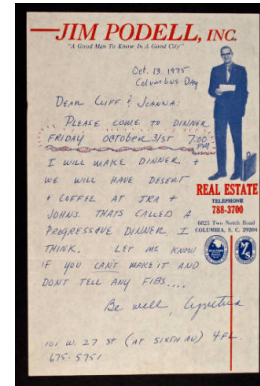 JIM PODELL, INC.
"A Good Man To Know In A Good City"
Oct. 13. 1975
Columbus Day
DEAR CLIFF & JOANNA:
PLEASE COME TO DINNER
FRIDAY OCTOBER 31ST 7:00
PM
I WILL MAKE DINNER +
WE WILL HAVE DESERT
+ COFFEE AT IRA +
JOHNS. THATS CALLED A
PROGRESSIVE DINNER I
THINK. LET ME KNOW
IF YOU CAN'T MAKE IT AND
DON'T TELL ANY FIBS....
Be well,
REAL ESTATE
TELEPHONE
788-3700
6025 Two Notch Road
COLUMBIA, S. C. 29204
101 W. 27 ST (AT SIXTH AV) 4FL.
675-5751